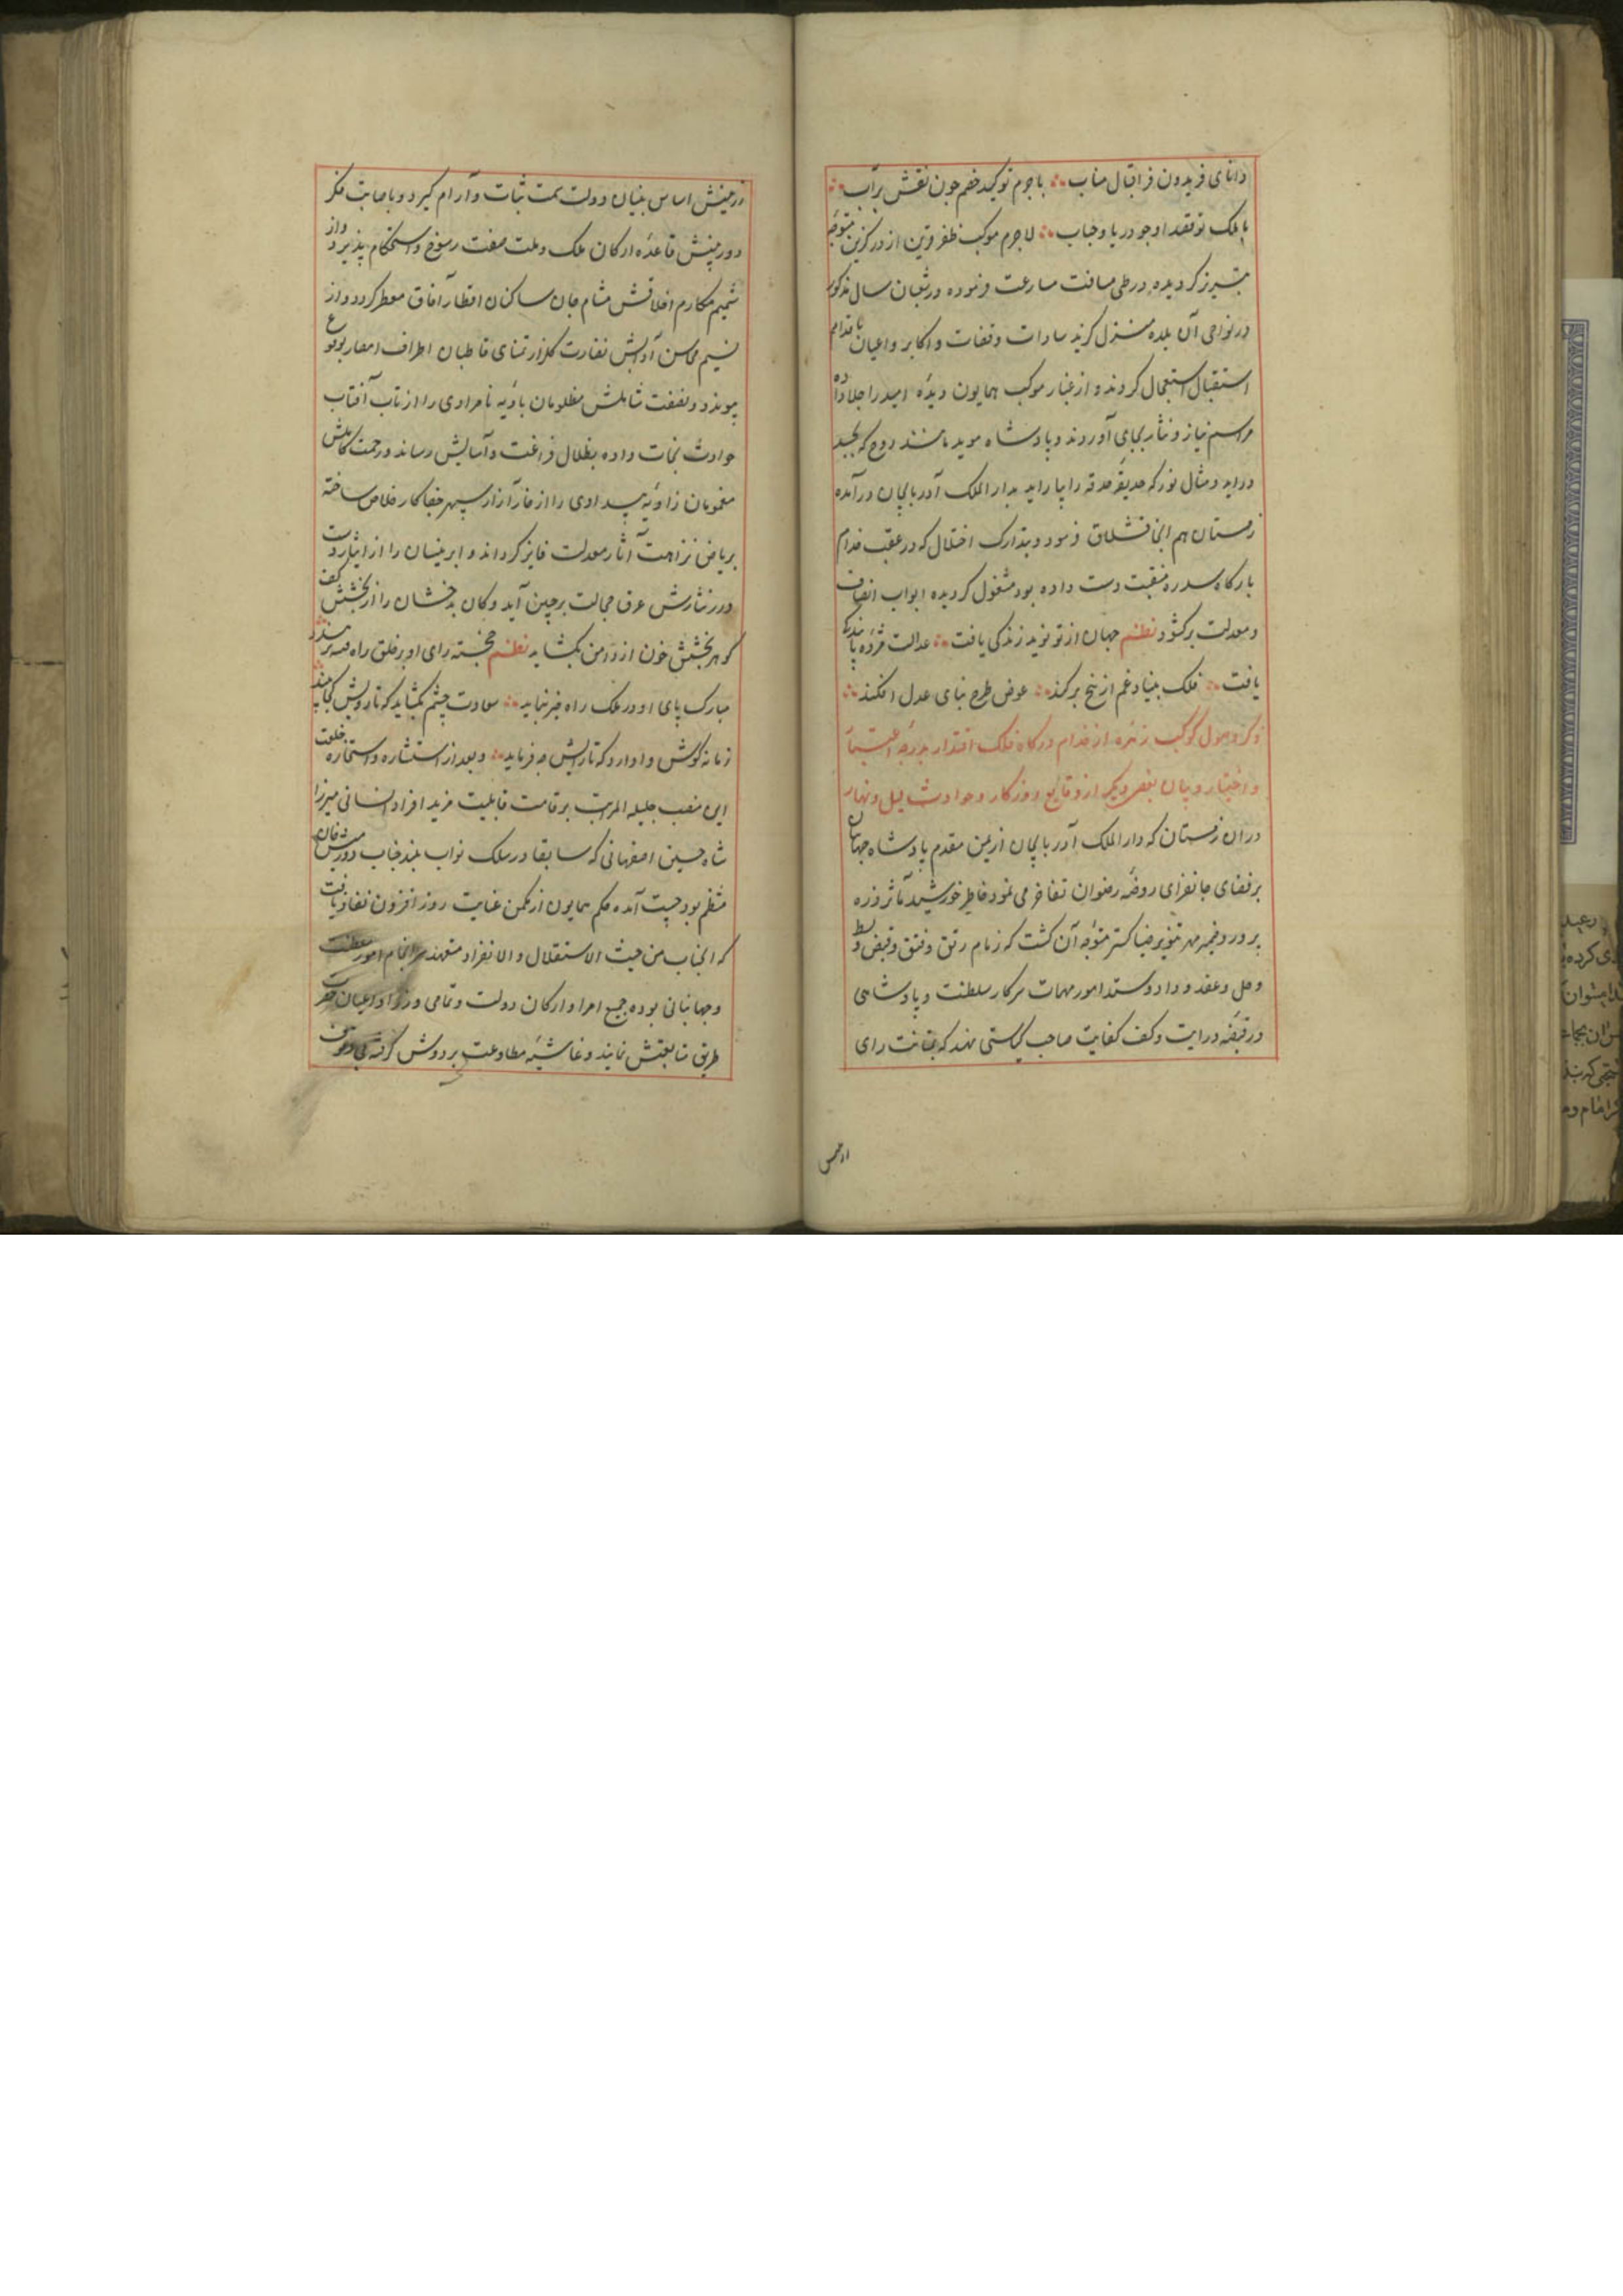 دانای فریدون فر اقبال مناب با جرم تو کید خصم چون نقش بر آب
با ملک تو قصد او چو دریا و حباب لاجرم موکب ظفر قرین از درگزین متوجه
تبریز گردیده در طی مسافت مسارعت فرموده در شعبان سال مذکور
در نواحی آن بلده منزل گزید سادات و قضات و اکابر و اعیان باقدام
استقبال استعجال کردند و از غبار موکب همایون دیدهٔ امید را جلا داده
مراسم نیاز و نثار بجای آوردند و پادشاه موید مانند روح که بجسد
دراید و مثال نور که حدیقهٔ حدقه را بیاراید بدار الملک آذربایجان درآمده
زمستان هم انجا قشلاق فرمود و بتدارک اختلال که در عقب خدام
بارگاه سدره منقبت دست داده بود مشغول گردیده ابواب انصاف
و معدلت برگشود نظم جهان از تو نوید زندگی یافت عدالت مژده پایندگی
یافت فلک بنیاد غم از بیخ برکند عوض طرح بنای عدل افکند
ذکر وصول کوکب زهره از خدام درگاه فلک اقتدار بدرجهٔ اعتبار
و اختیار و بیان بعضی دیگر از وقایع روزگار و حوادث لیل و نهار
دران زمستان که دار الملک آذربایجان از یمن مقدم پادشاه جهان
بر فضای جانفزای روضهٔ رضوان تفاخر می نمود خاطر خورشید مآثر ذره
پرور و ضمیر مهر تنویر ضیا گستر متوجه آن گشت که زمام رتق و فتق و قبض و بسط
و حل و عقد و داد و ستد امور مهمات سرکار سلطنت و پادشاهی
در قبضهٔ درایت و کف کفایت صاحب کیاستی نهد که بمتانت رای
رزینش اساس بنیان دولت سمت ثبات و آرام گیرد و باصابت فکر
دوربینش قاعدهٔ ارکان ملک و ملت صفت رسوخ و استحکام پذیرد و از
شمیم مکارم اخلاقش مشام جان ساکنان اقطار آفاق معطر گردد و از
نسیم محاسن آدابش نضارت گلزار تمنای قاطبان اطراف امصار بوقوع
پیوندد و نصفت شاملش مظلومان بادیه نامرادی را از تاب آفتاب
حوادث نجات داده بظلال فراغت و آسایش رساند و رحمت کاملش
مغمومان زاویه بیدادی را از خار آزار سپهر جفاکار خلاص ساخته
بریاض نزاهت آثار معدلت فایز گرداند و ابر نیسان را از ایثار دست
درر نثارش عرق خجالت بر جبین آید و کان بدخشان را از بخشش کف
گوهر بخشش خون از دامن بگشاید نظم خجسته رای او بر خلق راه
مبارک پای او در ملک راه خیر نماید سعادت چشم بگشاید که تا رویش کجا بیند
زمانه گوش وا دارد که تا رایش چه فرماید و بعد از استشاره و استخاره خلعت
این منصب جلیله المراتب بر قامت قابلیت فرید افراد انسانی میرزا
شاه حسین اصفهانی که سابقا در سلک نواب بلند جناب دورمش خان
منتظم بود چست آمده حکم همایون از مکمن عنایت روز افزون نفاذ یافت
که انجناب من حیث الاستقلال والانفراد متعهد سرانجام امور سلطنت
و جهانبانی بوده جمیع امرا و ارکان دولت و تمامی وزرا و اعیان حضرت
طریق متابعتش نمایند و غاشیهٔ مطاوعت بر دوش گرفته